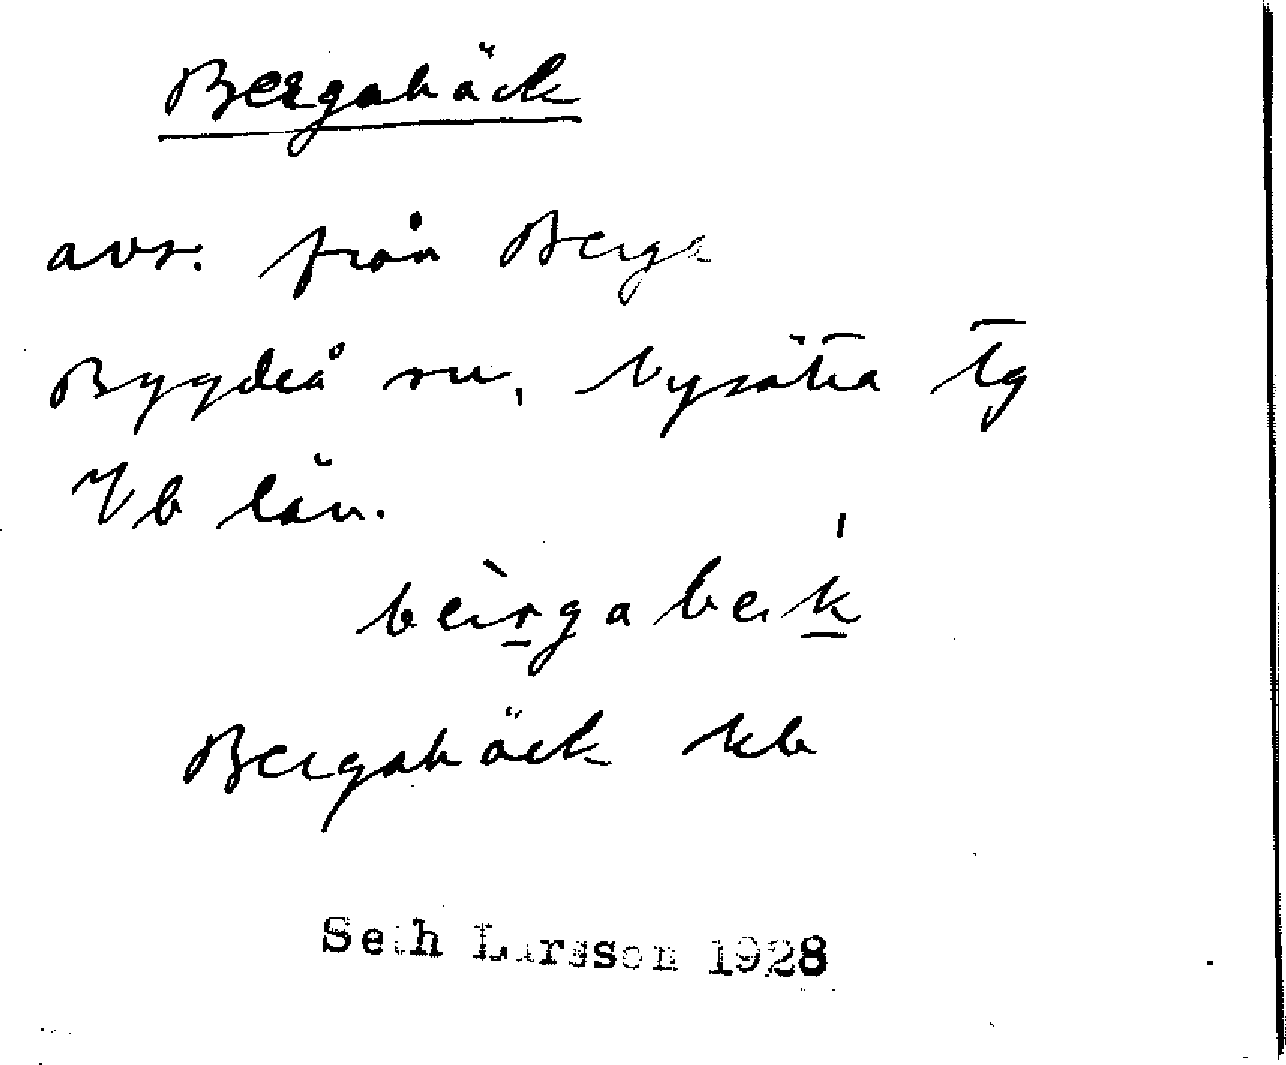 Bergabäck
avs. från Berga
Bygdeå sn, Nysätra tg
Vb län.
bergabäk
Bergabäck kb
Seth Larsson 1928